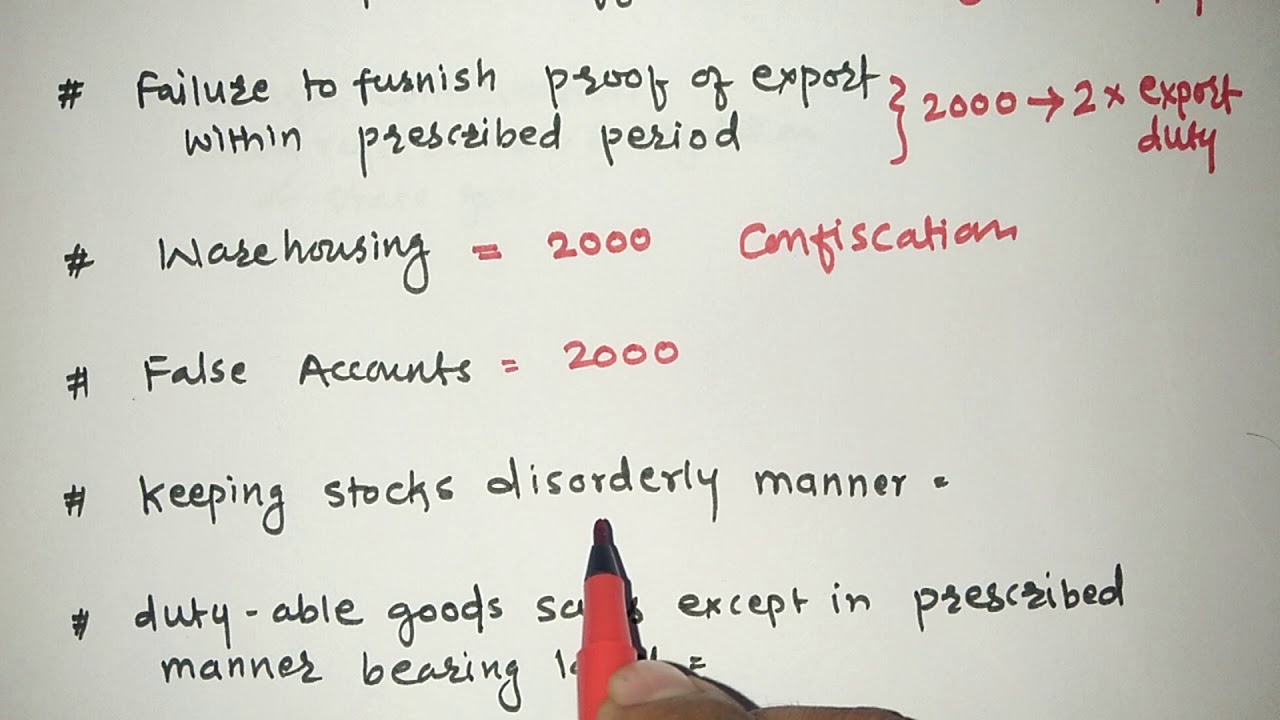 # Failure to furnish proof of export } 2000 → 2 × export
within prescribed period duty
# Warehousing = 2000 Confiscation
# False Accounts = 2000
# keeping stocks disorderly manner =
# duty-able goods except in prescribed
manner bearing =